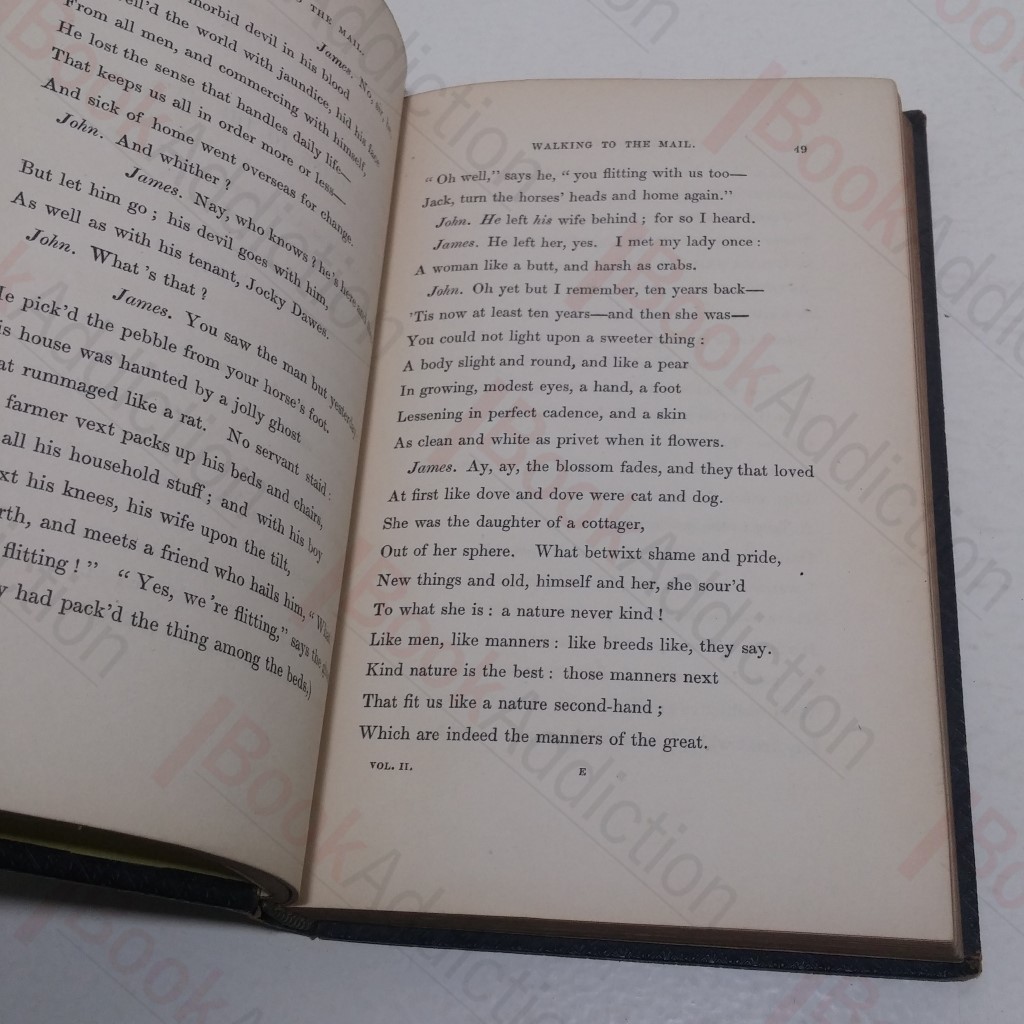 TO THE MAIL.
James. No,
morbid devil in his blood
the world with jaundice, hid his face
From all men, and commercing with himself,
He lost the sense that handles daily life—
That keeps us all in order more or less—
And sick of home went overseas for change.
John. And whither ?
James. Nay, who knows ? he's here and
But let him go ; his devil goes with him,
As well as with his tenant, Jocky Dawes.
John. What 's that ?
James. You saw the man but yesterday
He pick'd the pebble from your horse's foot.
is house was haunted by a jolly ghost
at rummaged like a rat. No servant staid :
farmer vext packs up his beds and chairs,
all his household stuff ; and with his boy
xt his knees, his wife upon the tilt,
rth, and meets a friend who hails him, “ What
flitting ! ” “ Yes, we 're flitting,” says the
y had pack'd the thing among the beds,)
WALKING TO THE MAIL. 49
“ Oh well,” says he, “ you flitting with us too—
Jack, turn the horses' heads and home again.”
John. He left his wife behind ; for so I heard.
James. He left her, yes. I met my lady once :
A woman like a butt, and harsh as crabs.
John. Oh yet but I remember, ten years back—
'Tis now at least ten years—and then she was—
You could not light upon a sweeter thing :
A body slight and round, and like a pear
In growing, modest eyes, a hand, a foot
Lessening in perfect cadence, and a skin
As clean and white as privet when it flowers.
James. Ay, ay, the blossom fades, and they that loved
At first like dove and dove were cat and dog.
She was the daughter of a cottager,
Out of her sphere. What betwixt shame and pride,
New things and old, himself and her, she sour'd
To what she is : a nature never kind !
Like men, like manners : like breeds like, they say.
Kind nature is the best : those manners next
That fit us like a nature second-hand ;
Which are indeed the manners of the great.
VOL. II. E
BookAddiction